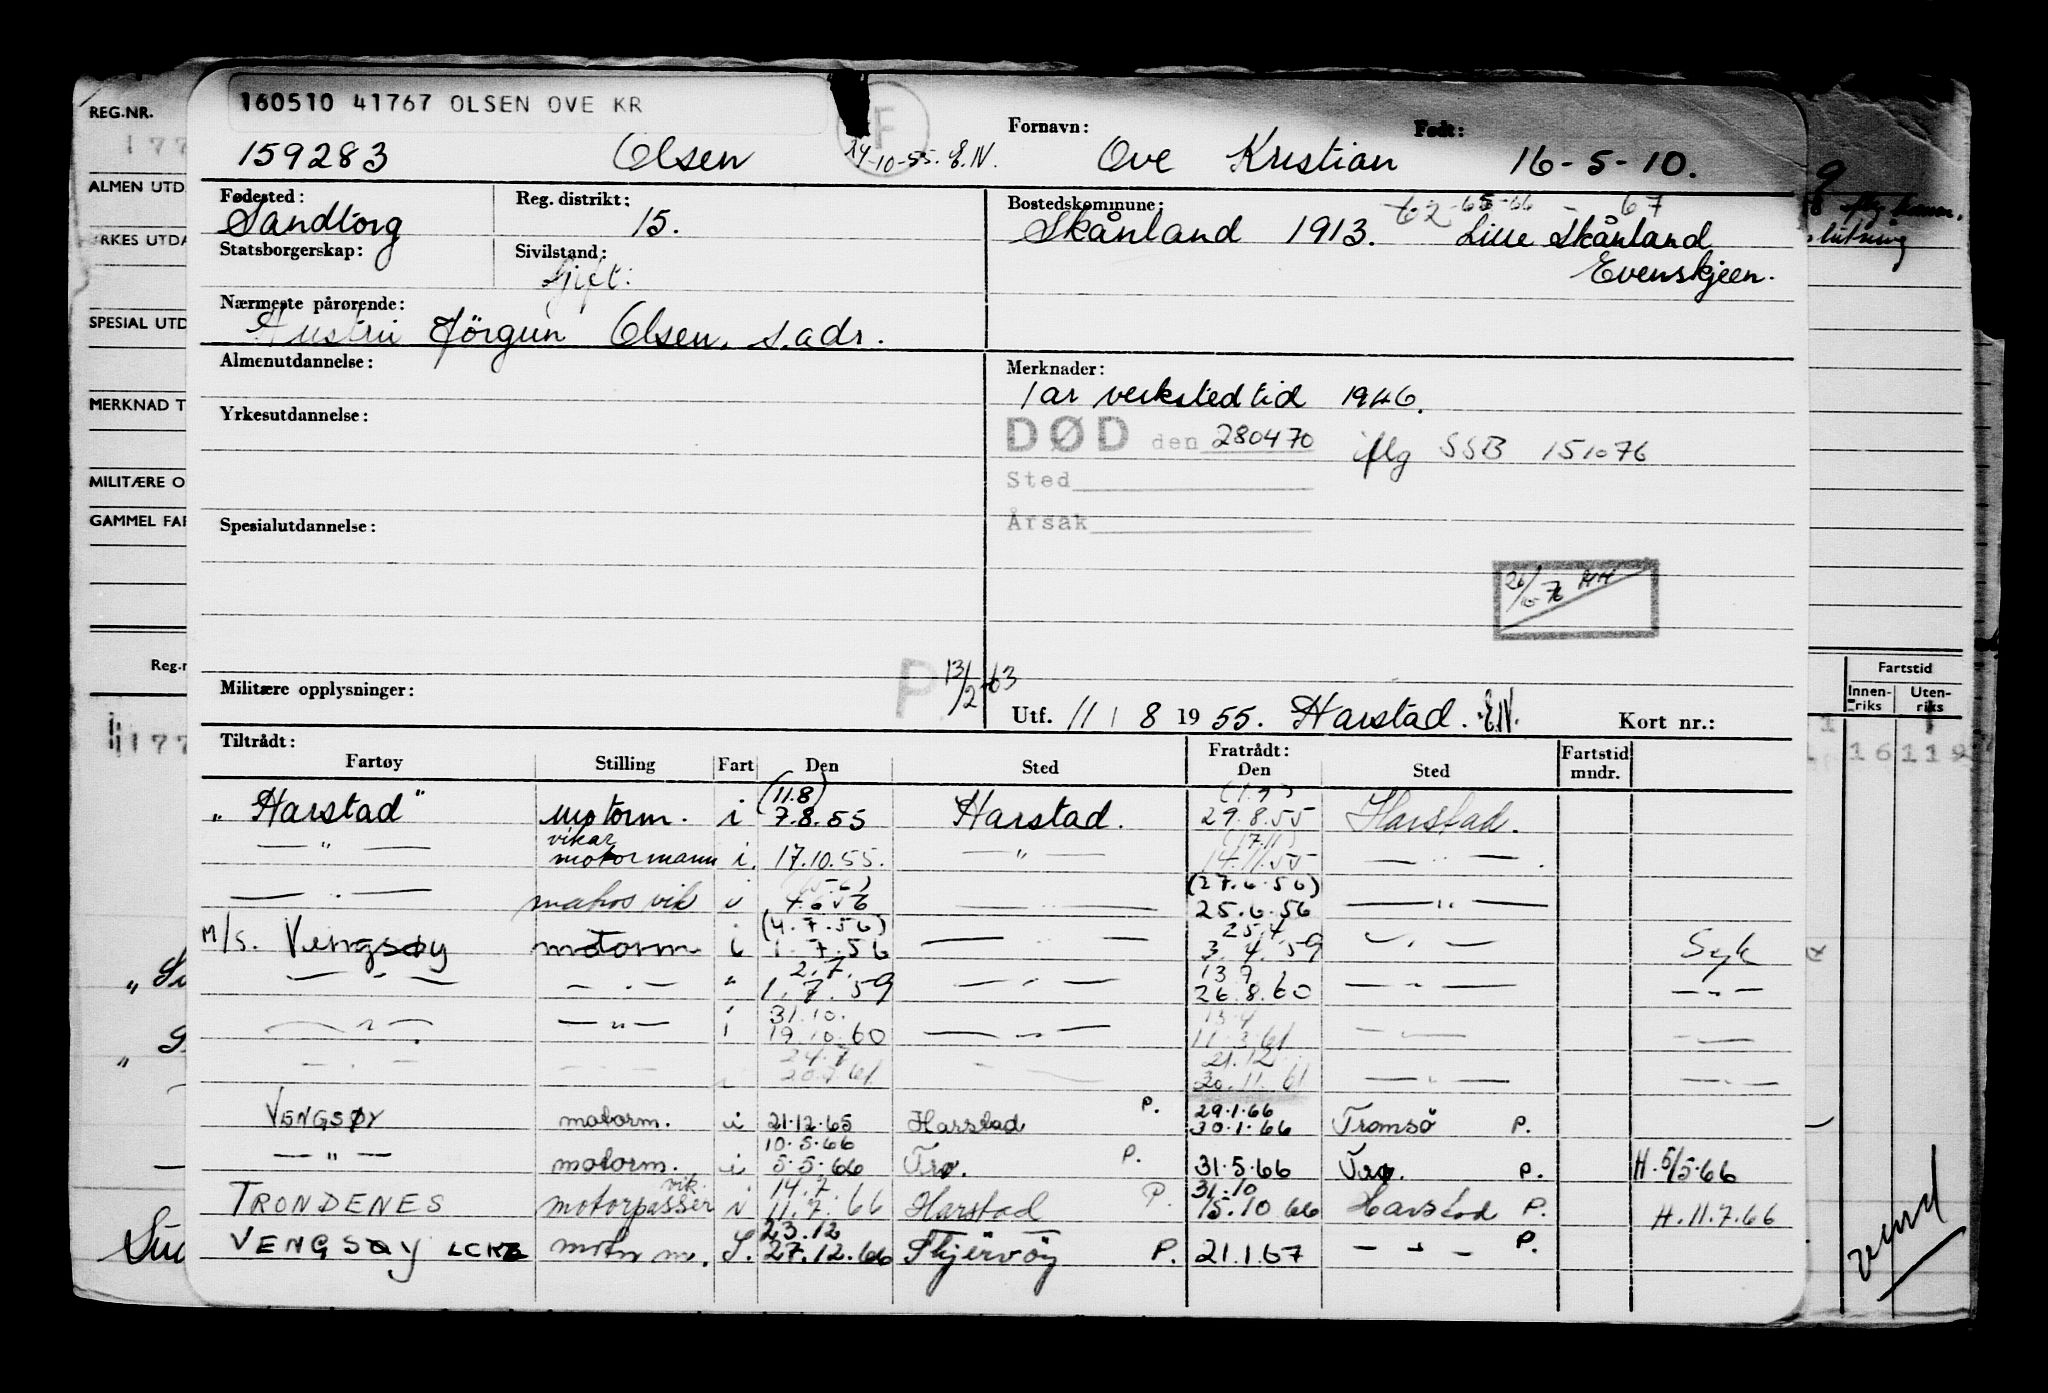 160510 41767 OLSEN OVE KR
F
REG.NR.
177
ALMEN UTD
YRKES UTDA
SPESIAL UTD
MERKNAD T
MILITÆRE O
GAMMEL FAR
Reg.n
177
159283 Olsen 24-10-55. E.N.
Fornavn: Ove Kristian
Født: 16-5-10.
Fødested: Sandtorg
Reg. distrikt: 15.
Bostedskommune: 62-65-66 - 67
Skånland 1913. Lille Skånland
Evenskjeen.
Statsborgerskap:
Sivilstand: Gift.
Nærmeste pårørende:
Hustru Jörgun Olsen, s.adr.
Almenutdannelse:
Yrkesutdannelse:
Spesialutdannelse:
Militære opplysninger:
Merknader:
1 år verkstedtid 1946.
DØD den 280470 iflg SSB 151076
Sted
Årsak
26/10-76
P 13/2-63
Utf. 11 / 8 1955. Harstad. E.N.
Kort nr.:
Tiltrådt: Fratrådt:
Fartøy Stilling Fart Den Sted Den Sted Fartstid mndr.
(11.8)
"Harstad" motorm. i 7.8.55 Harstad. 29.8.55 Harstad.
vikar (17.11)
— " — motormann i. 17.10.55. — " — 14.11.55 — " — .
(27.6.56)
— " — matros vik i 4.6.56 — " — 25.6.56 — " —
(4.7.56) 25.4.
M/S. Vengsøy motorm i 1.7.56 — " — 3.4.59 — " — Syk
2.7. 13 9
— " — — " — " 1.7.59 — " — 26.8.60 — " — — " —
31.10. 13.4
— " — — " — i 19.10.60 — " — 11.3.61 — " — — " —
24.7 21.12
— " — — " — i 20.7.61 — " — 20.11.61 — " — — " —
29.1.66
VENGSØY motorm. i 21.12.65 Harstad P. 30.1.66 Tromsö P.
10.5.66
— " — motorm. i 5.5.66 Trø. P. 31.5.66 Trø. P. H. 5/5.66
vik. 14.7. 31.10
TRONDENES motorpasser i 11.7.66 Harstad P. 15.10 66 Harstad P. H. 11.7.66
23.12
VENGSØY LCKB motorm. S. 27.12.66 Skjervöy P. 21.1.67 — " — P.
Fartstid
Innen-riks Uten-riks
16 119